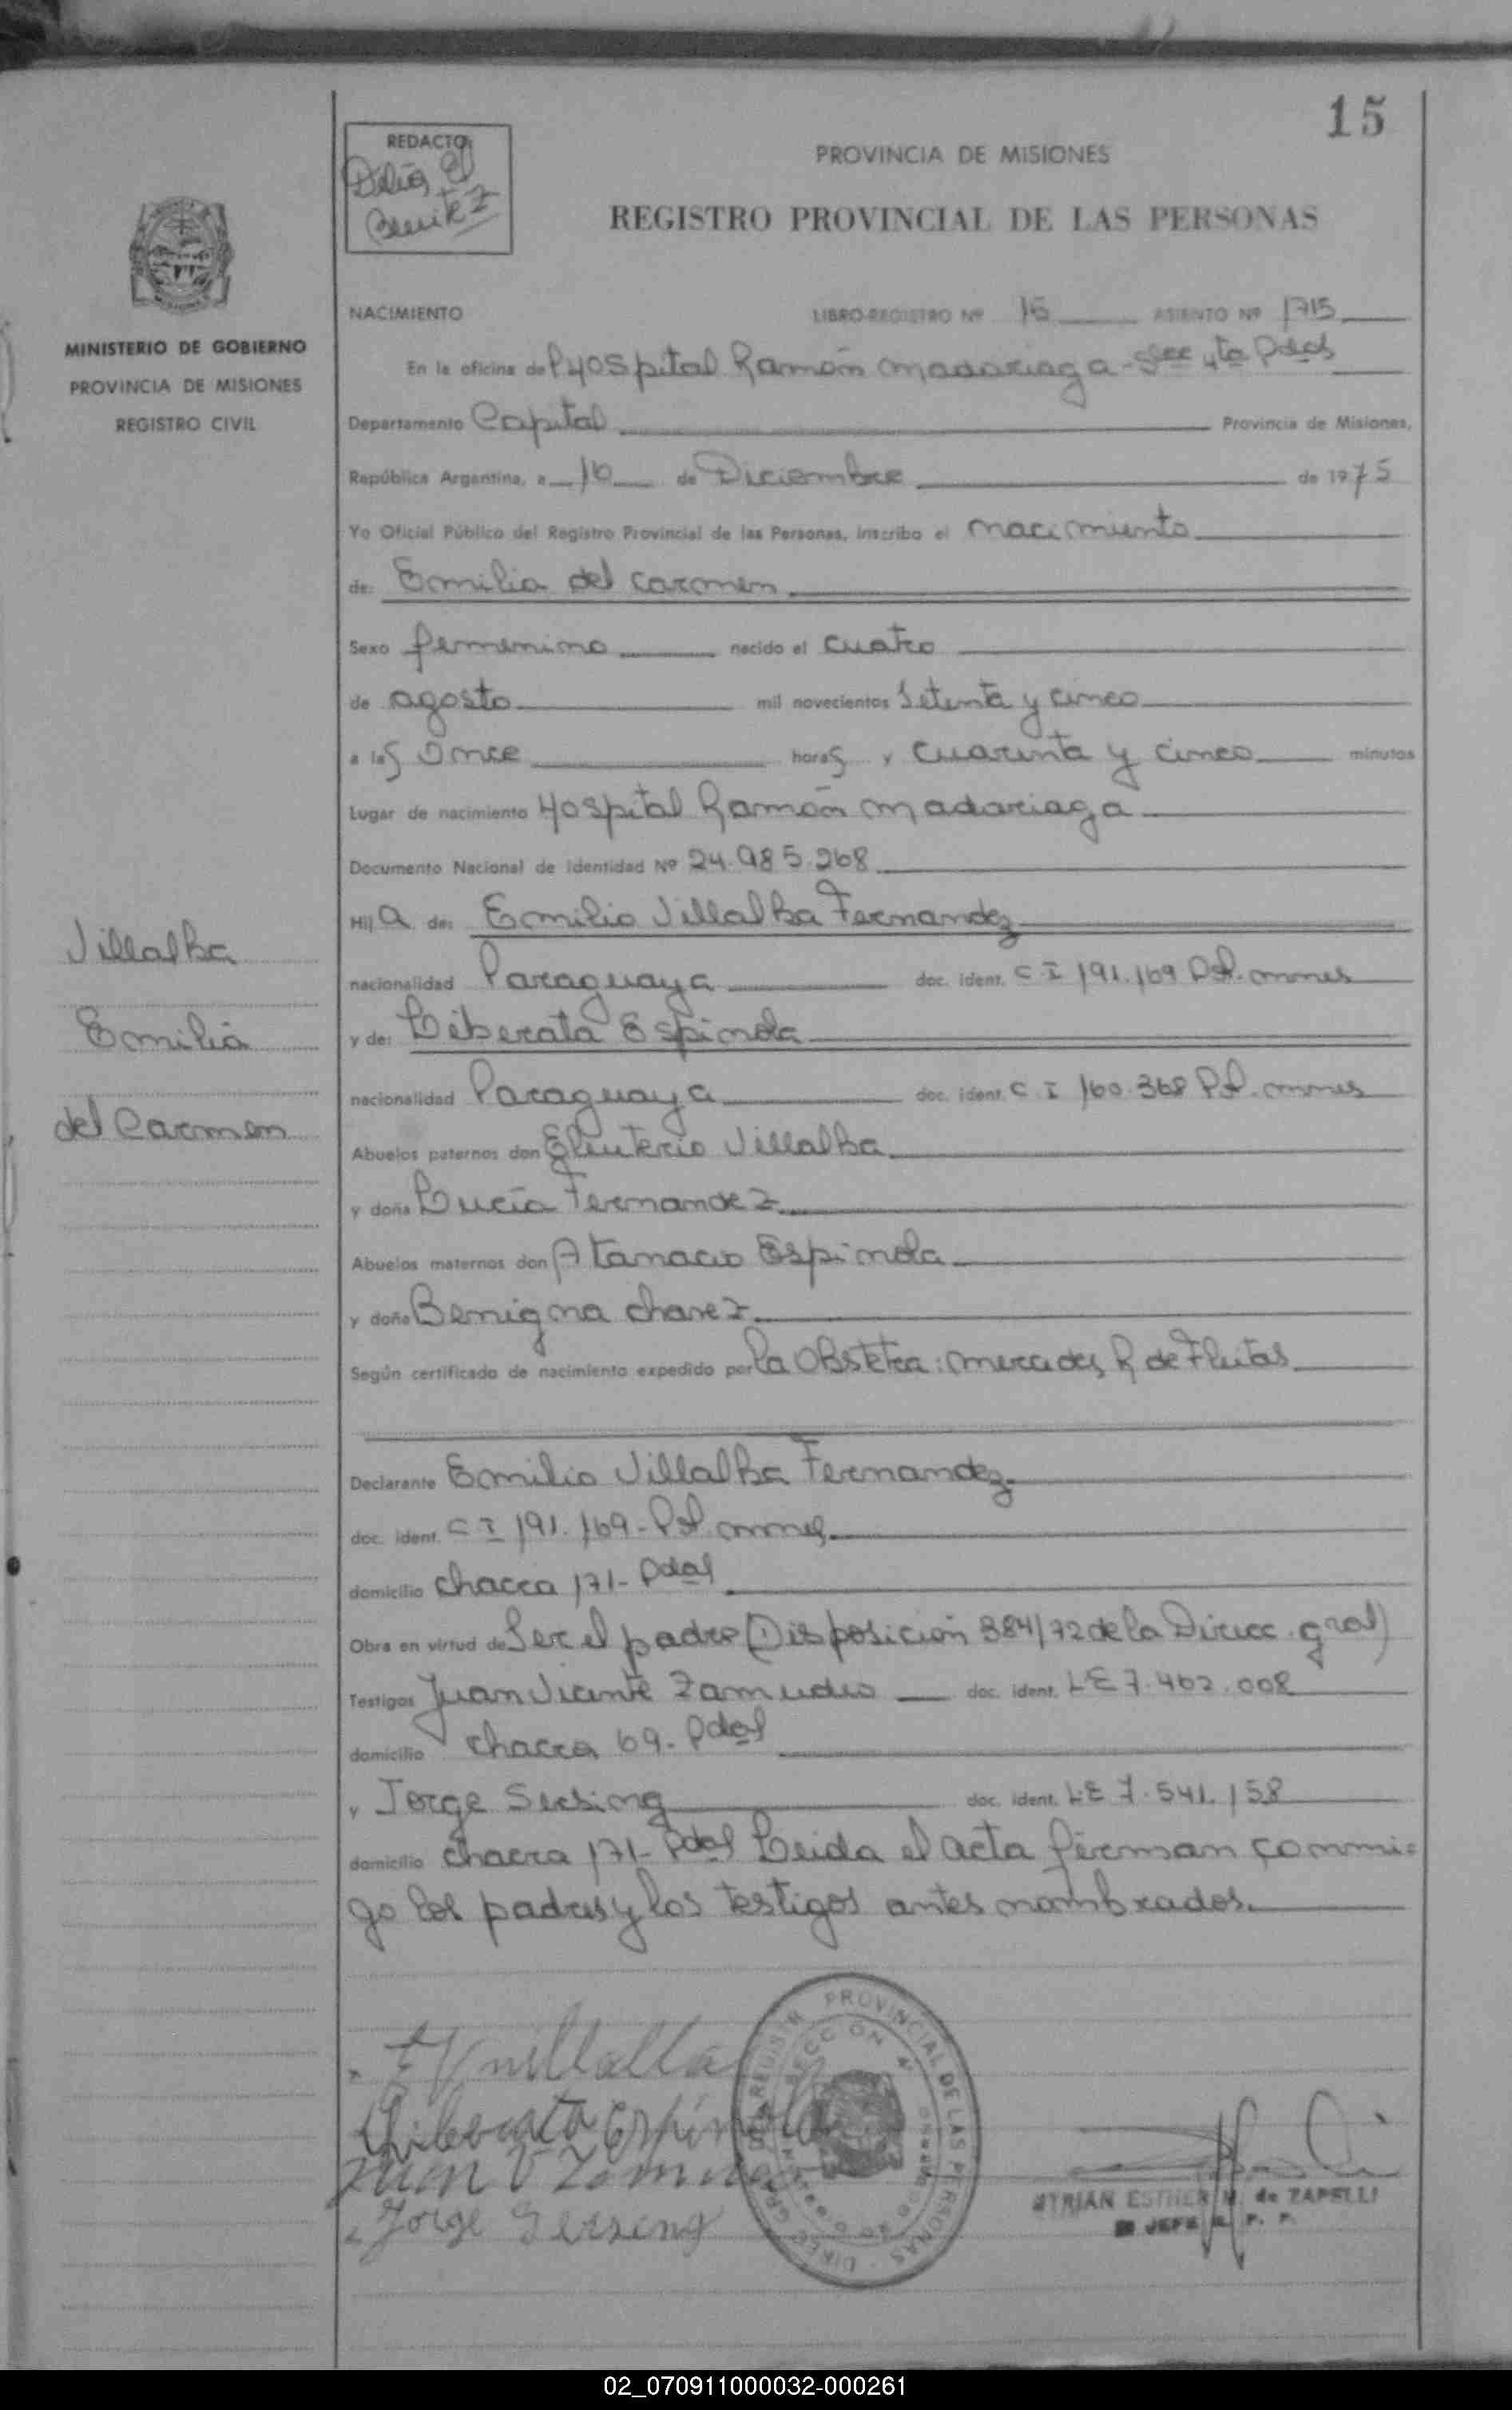 15
REDACTO:
Delia E
Benitez
PROVINCIA DE MISIONES
REGISTRO PROVINCIAL DE LAS PERSONAS
MINISTERIO DE GOBIERNO
PROVINCIA DE MISIONES
REGISTRO CIVIL
NACIMIENTO LIBRO-REGISTRO Nº 15 ASIENTO Nº 1715
En la oficina del Hospital Ramón Madariaga - Secc 4ta Pdas
Departamento Capital Provincia de Misiones,
República Argentina, a 16 de Diciembre de 1975
Yo Oficial Público del Registro Provincial de las Personas, inscribo el nacimiento
de: Emilia del Carmen
Sexo femenino nacido el cuatro
de agosto mil novecientos setenta y cinco
a las once horas y cuarenta y cinco minutos
Lugar de nacimiento Hospital Ramón Madariaga
Documento Nacional de Identidad Nº 24.985.268
Hija de: Emilio Villalba Fernandez
nacionalidad Paraguaya doc. ident. C I 191.169 Pol. mnes
y de: Liberata Espinola
nacionalidad Paraguaya doc. ident. C. I 160.368 Pol. mnes
Abuelos paternos don Eleuterio Villalba
y doña Lucía Fernandez
Abuelos maternos don Atanacio Espinola
y doña Benigna Chavez
Según certificado de nacimiento expedido por la obstetra: Mercedes R de Fleitas
Villalba
Emilia
del Carmen
Declarante Emilio Villalba Fernandez
doc. ident. C I 191.169 - Pol. mnes
domicilio chacra 171 - Pdas
Obra en virtud de Ser el padre (Disposición 384/72 de la Direcc. gral)
Testigos Juan Vicente Zamudio doc. ident. LE 7.462.008
domicilio chacra 69. Pdas
y Jorge Sersing doc. ident. LE 7.541.158
domicilio chacra 171 - Pdas Leida el acta firman conmi-
go los padres y los testigos antes nombrados.
E Villalba
Liberata Espinola
Juan V Zamudio
Jorge Serseng
PROVINCIAL DE LAS PERSONAS
SECCION 4
MYRIAN ESTHER M. de ZAPELLI
JEFE R. P. P.
02_070911000032-000261